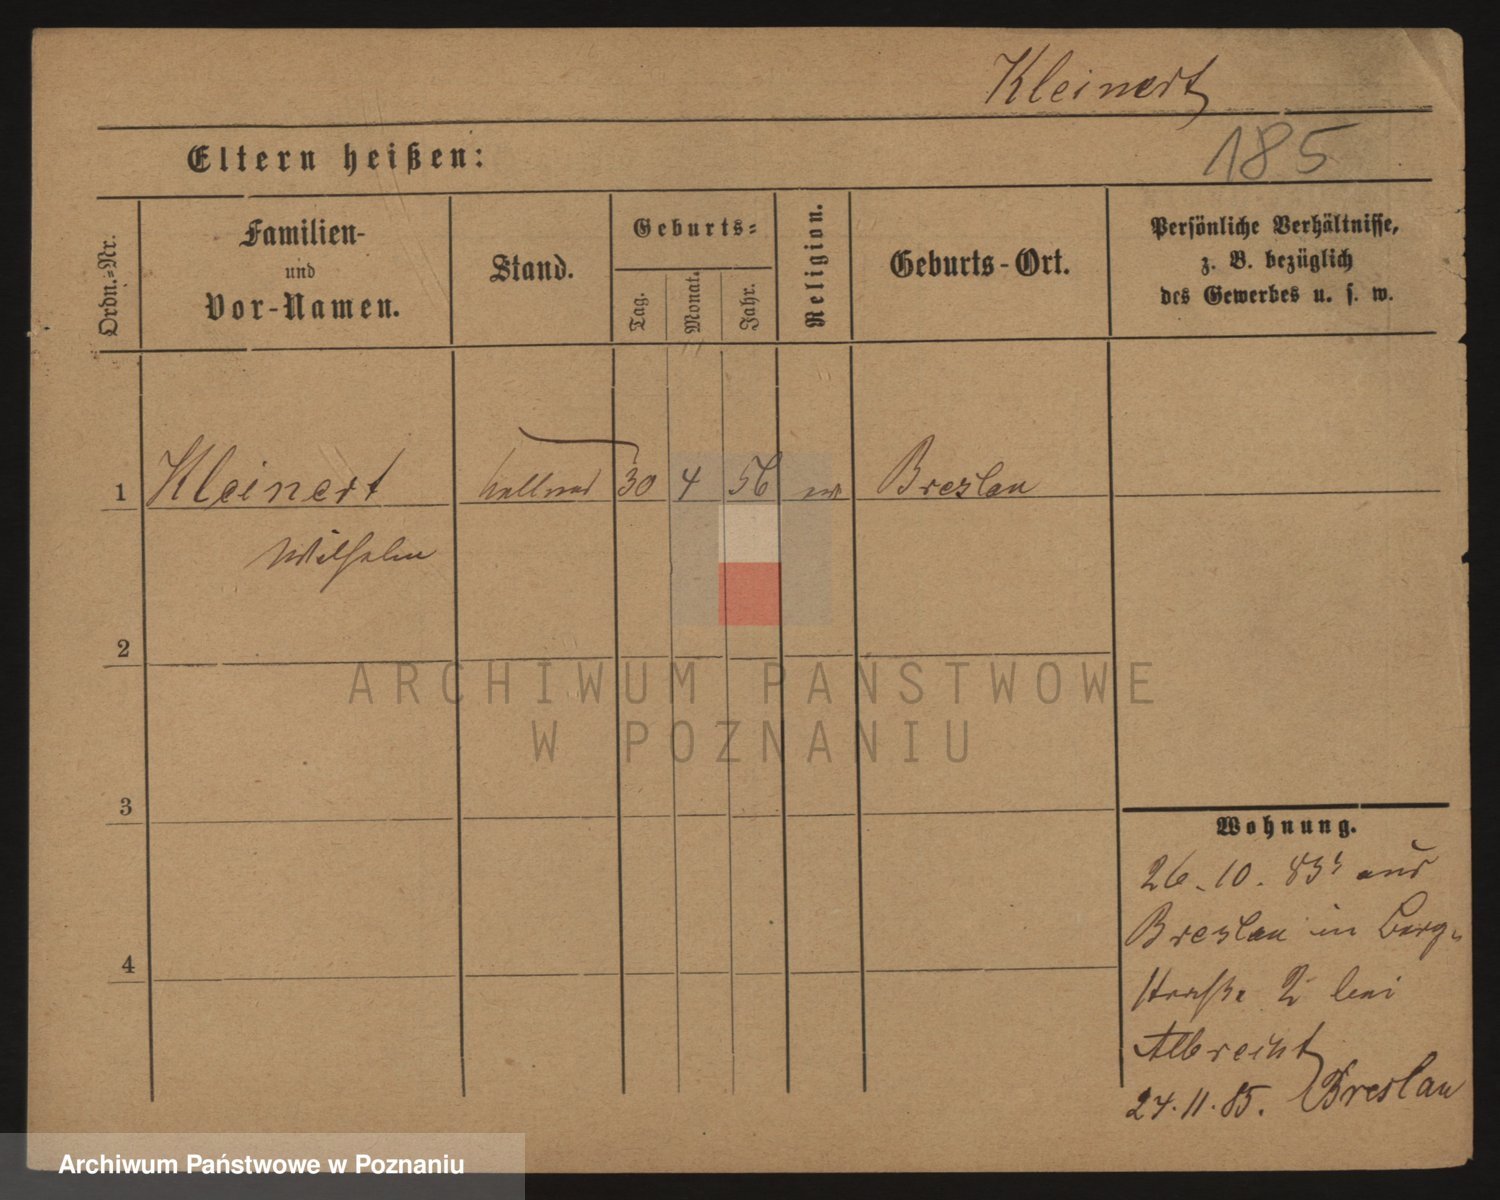 Kleinert
185
Eltern heißen:
Ordn.-Nr.
Familien-
und
Vor-Namen.
Stand.
Geburts-
Tag.
Monat.
Jahr.
Religion.
Geburts-Ort.
Persönliche Verhältnisse,
z. B. bezüglich
des Gewerbes u. s. w.
1 Kleinert Kellner 30 4 56 ev Breslau
Wilhelm
2
3
4
Wohnung.
26. 10. 83 aus
Breslau in Berg-
straße 2 bei
Albrecht
24.11.85. Breslau
ARCHIWUM PAŃSTWOWE
W POZNANIU
Archiwum Państwowe w Poznaniu